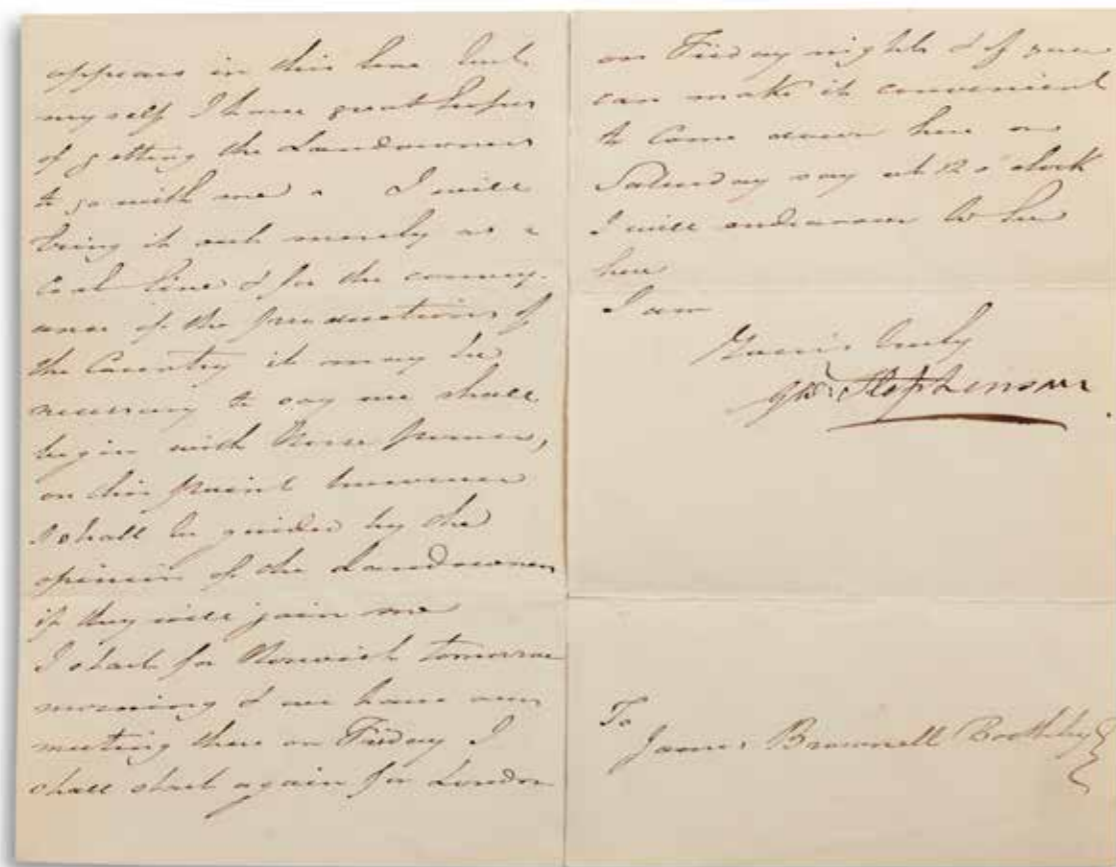 appears in this line but
myself I have great hopes
of getting the Landowners
to go with me & I will
bring it out merely as a
Coal line & for the convey-
ance of the productions of
the Country it may be
necessary to say we shall
begin with Horse power,
on this point however
I shall be guided by the
opinion of the Landowners
if they will join me
I start for Norwich tomorrow
morning & we have our
meeting there on Friday I
shall start again for London
on Friday night & if you
can make it convenient
to Come down here on
Saturday say at 12 o'clock
I will endeavour to be
here
I am
Yours truly
Geo. Stephenson
To
James Brownell Boothby